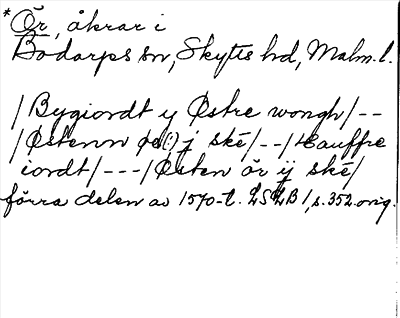 *Ör, åkrar i
Bodarps sn, Skytts hd, Malm.l.
/Bygiordt y Østre wongh/--
/Østenn ø(!) j ske/--/Hauffre
iordt/---/Østen ör ij ske/
förra delen av 1570-t. LSLB 1, s. 352 orig.